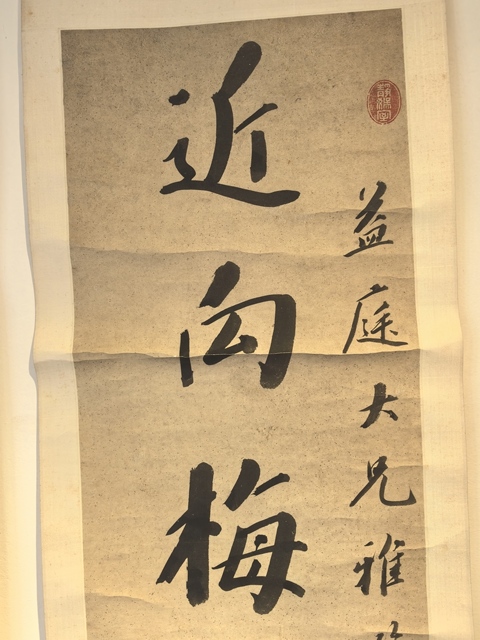 益庭大兄雅
近向梅